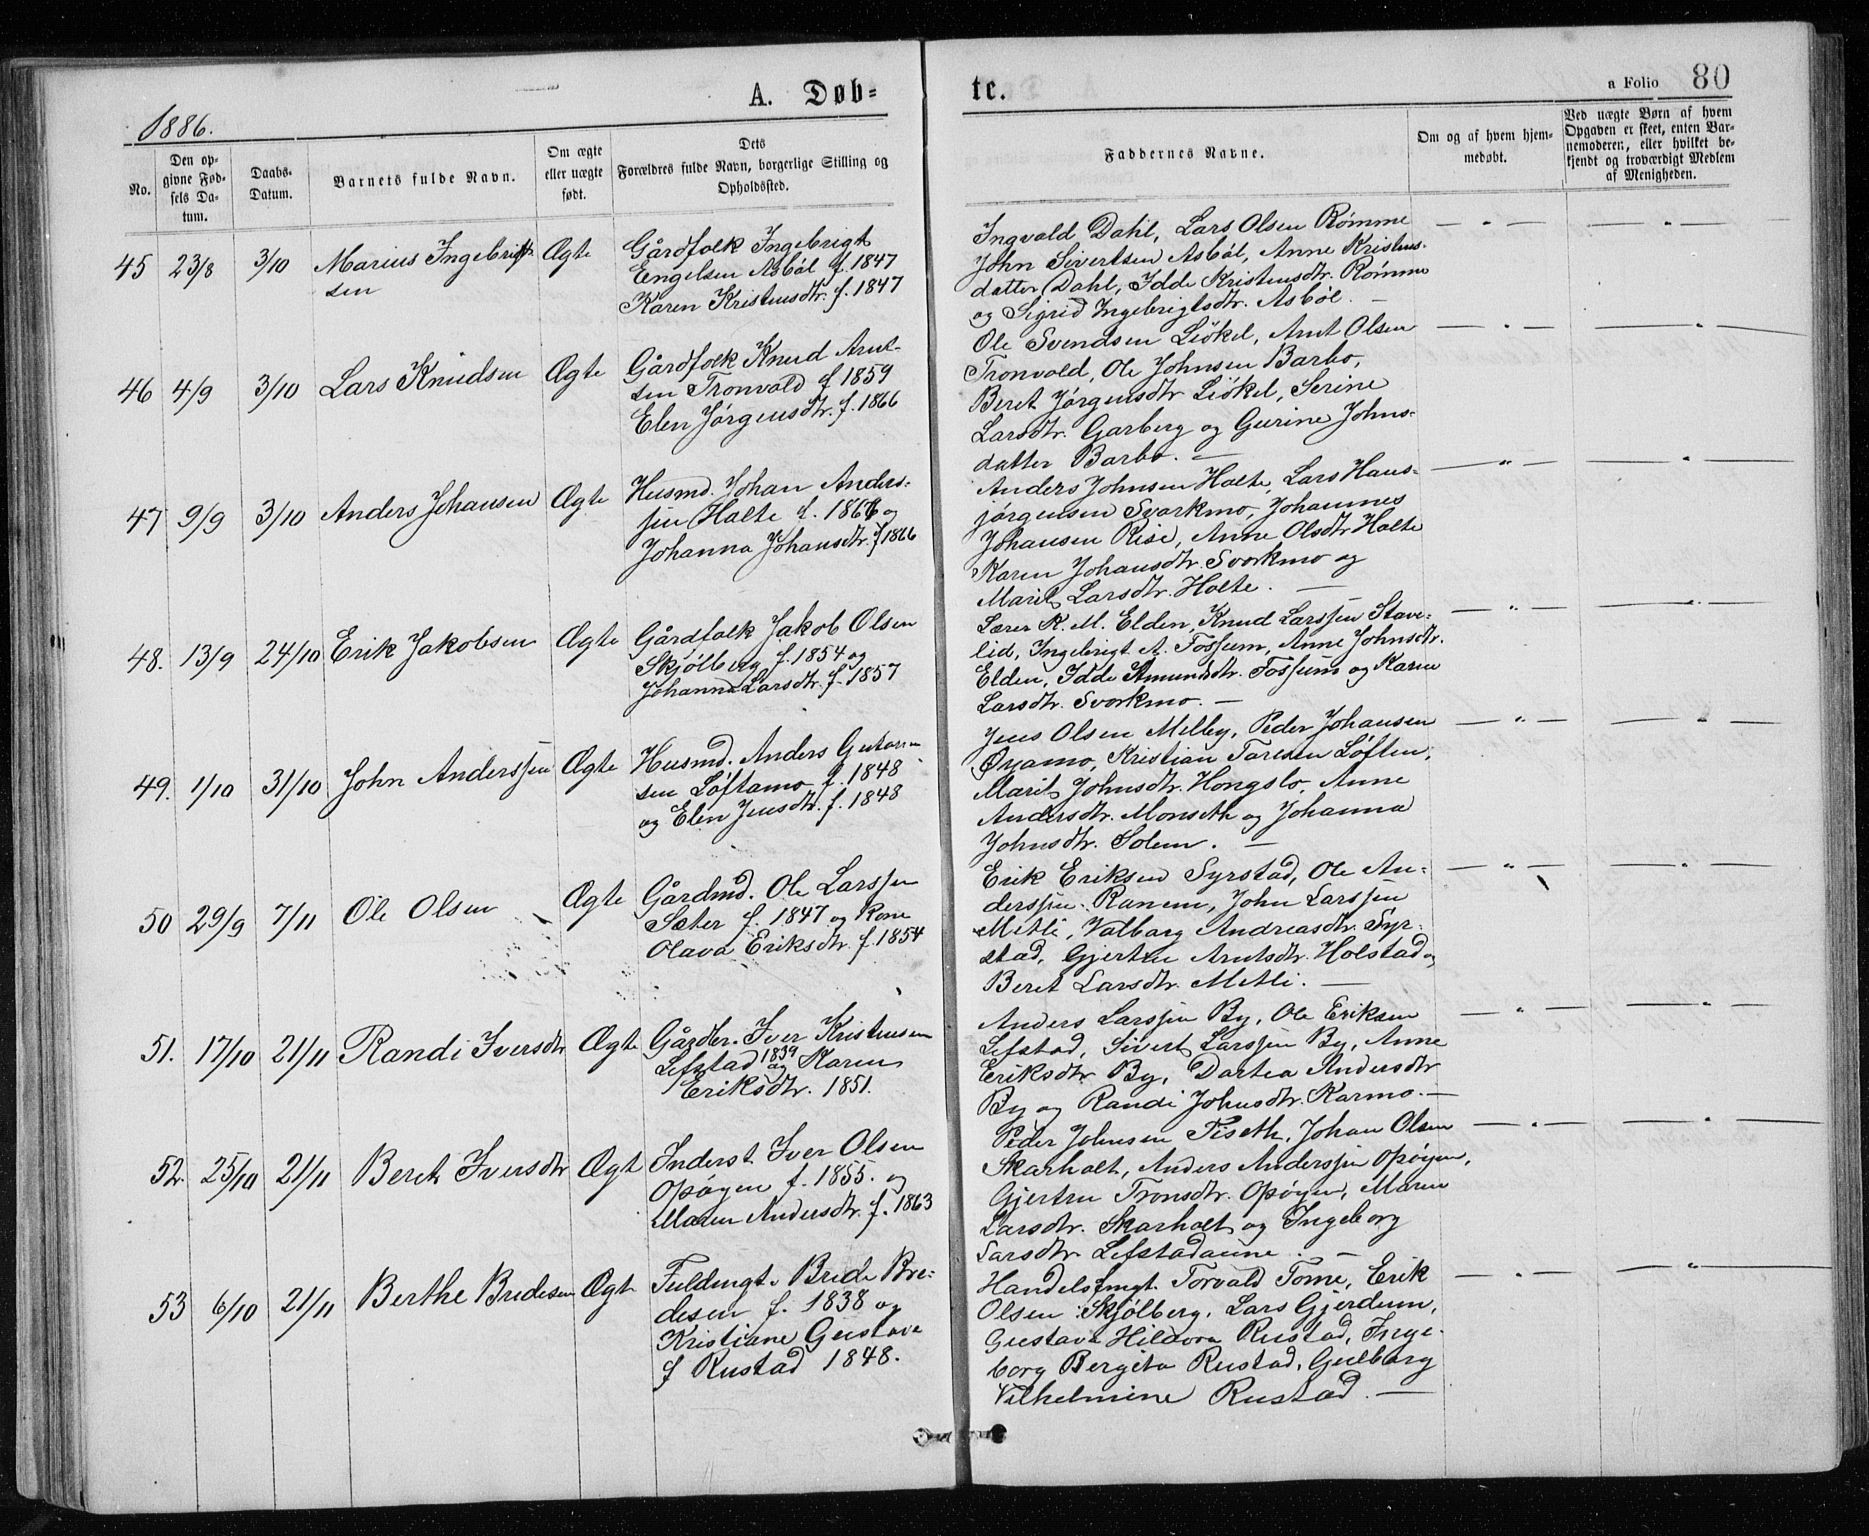 1886.
A. Døb=
te.
a Folio 80
No.
Den op-
givne Fød-
sels Da-
tum.
Daabs-
Datum.
Barnets fulde Navn.
Om ægte
eller uægte
født.
Dets
Forældres fulde Navn, borgerlige Stilling og
Opholdssted.
Faddernes Navne.
Om og af hvem hjem-
medøbt.
Ved uægte Børn af hvem
Opgaven er skeet, enten Bar-
nemoderen, eller hvilket be-
kjendt og troværdigt Medlem
af Menigheden.
45 23/8 3/10 Marius Ingebrigt-
sen
Ægte
Gårdfolk Ingebrigt
Engelsen Asbøl f. 1847
Karen Kristensdtr. f. 1847
Ingvald Dahl, Lars Olsen Rømme
John Sivertsen Asbøl, Anne Kristens-
datter Dahl, Idde Kristensdtr. Rømme
og Sigrid Ingebrigtsdtr. Asbøl. —
46 4/9 3/10 Lars Knudsen
Ægte
Gårdfolk Knud Arnt-
sen Tronvold f 1859
Elen Jørgensdtr. f. 1866
Ole Svendsen Liøkel, Arnt Olsen
Tronvold, Ole Johnsen Barbo,
Beret Jørgensdtr Liøkel, Serine
Larsdtr. Garberg og Gurine Johns-
datter Barbo. —
47 9/9 3/10 Anders Johansen
Ægte
Husmd. Johan Anders-
sen Holte f. 1866 og
Johanna Johansdtr. f 1866
Anders Johnsen Holte, Lars Hans-
jørgensen Svorkmo, Johannes
Johansen Rise, Anne Olsdtr Holte
Karen Johansdtr. Svorkmo og
Marit Larsdtr. Holte. —
48. 13/9 24/10 Erik Jakobsen
Ægte
Gårdfolk Jakob Olsen
Skjølberg f. 1854 og
Johanna Larsdtr. f. 1857
Lærer K. M. Elden, Knud Larssen Stave-
lid, Ingebrigt A. Fossum, Anne Johnsdtr.
Elden, Idde Amundsdtr. Fossum og Karen
Larsdtr. Svorkmo. —
49. 1/10 31/10 John Anderssen
Ægte
Husmd. Anders
sen Løftamo f. 1848
og Elen Jensdtr. f. 1848
Jens Olsen Melby, Peder Johansen
Øyamo, Kristian Taresen Løften,
Marit Johnsdtr. Hongslo, Anne
Andersdtr. Monseth og Johanna
Johnsdtr. Solem. —
50 29/9 7/11 Ole Olsen
Ægte
Gårdmd. Ole Larssen
Sæter f. 1847 og Kone
Olava Eriksdtr. f. 1854
Erik Eriksen Syrstad, Ole An-
derssen Ranem, John Larssen
Metli, Valborg Andreasdtr. Syr-
stad, Gjertru Arntsdtr. Holstad og
Beret Larsdtr. Metli. —
51. 17/10 21/11 Randi Iversdtr
Ægte
Gårdbr. Iver Kristensen
Lefstad 1839 og Karen
Eriksdtr. 1851.
Anders Larssen By, Ole Eriksen
Lefstad, Sivert Larssen By, Anne
Eriksdtr By, Dortea Andersdtr
By og Randi Johnsdtr. Karmo. —
52. 25/10 21/11 Beret Iversdtr
Ægt
Inderst Iver Olsen
Opøyen f. 1855. og
Maren Andersdtr. f. 1863
Peder Johnsen Fiseth, Johan Olsen
Skarholt, Anders Anderssen Opøyen,
Gjertru Tronsdtr. Opøyen, Maren
Larsdtr. Skarholt og Ingeborg
Larsdtr. Lefstadaune. —
53 6/10 21/11 Berthe Bredesen
Ægt
Fuldmgt. Brede Bre-
desen f. 1838 og
Kristiane Gustava
f Rustad 1848.
Handelsfmgt. Torvald Tome, Erik
Olsen Skjølberg, Lars Gjerdum,
Gustava Hildora Rustad, Inge-
borg Bergita Rustad, Gulborg
Vilhelmine Rustad. —